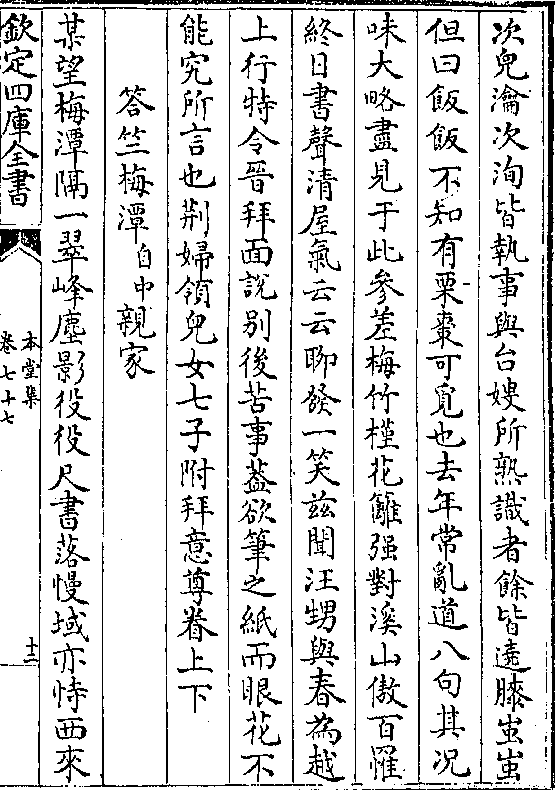 次兒瀹次洵皆執事與台嫂所熟識者餘皆遶膝蚩蚩
但曰飯飯不知有栗棗可覓也去年常亂道八句其况
味大略盡見于此參差梅竹槿花籬强對溪山傲百罹
終日書聲清屋氣云云聊發一笑兹聞汪甥與春為越
上行特令晉拜面說别後苦事蓋欲筆之紙而眼花不
能究所言也荆婦領兒女七子附拜意尊眷上下
答竺梅潭自中親家
某望梅潭隔一翠峰塵影役役尺書落慢域亦恃西來
欽定四庫全書
本堂集
卷七十七
十二